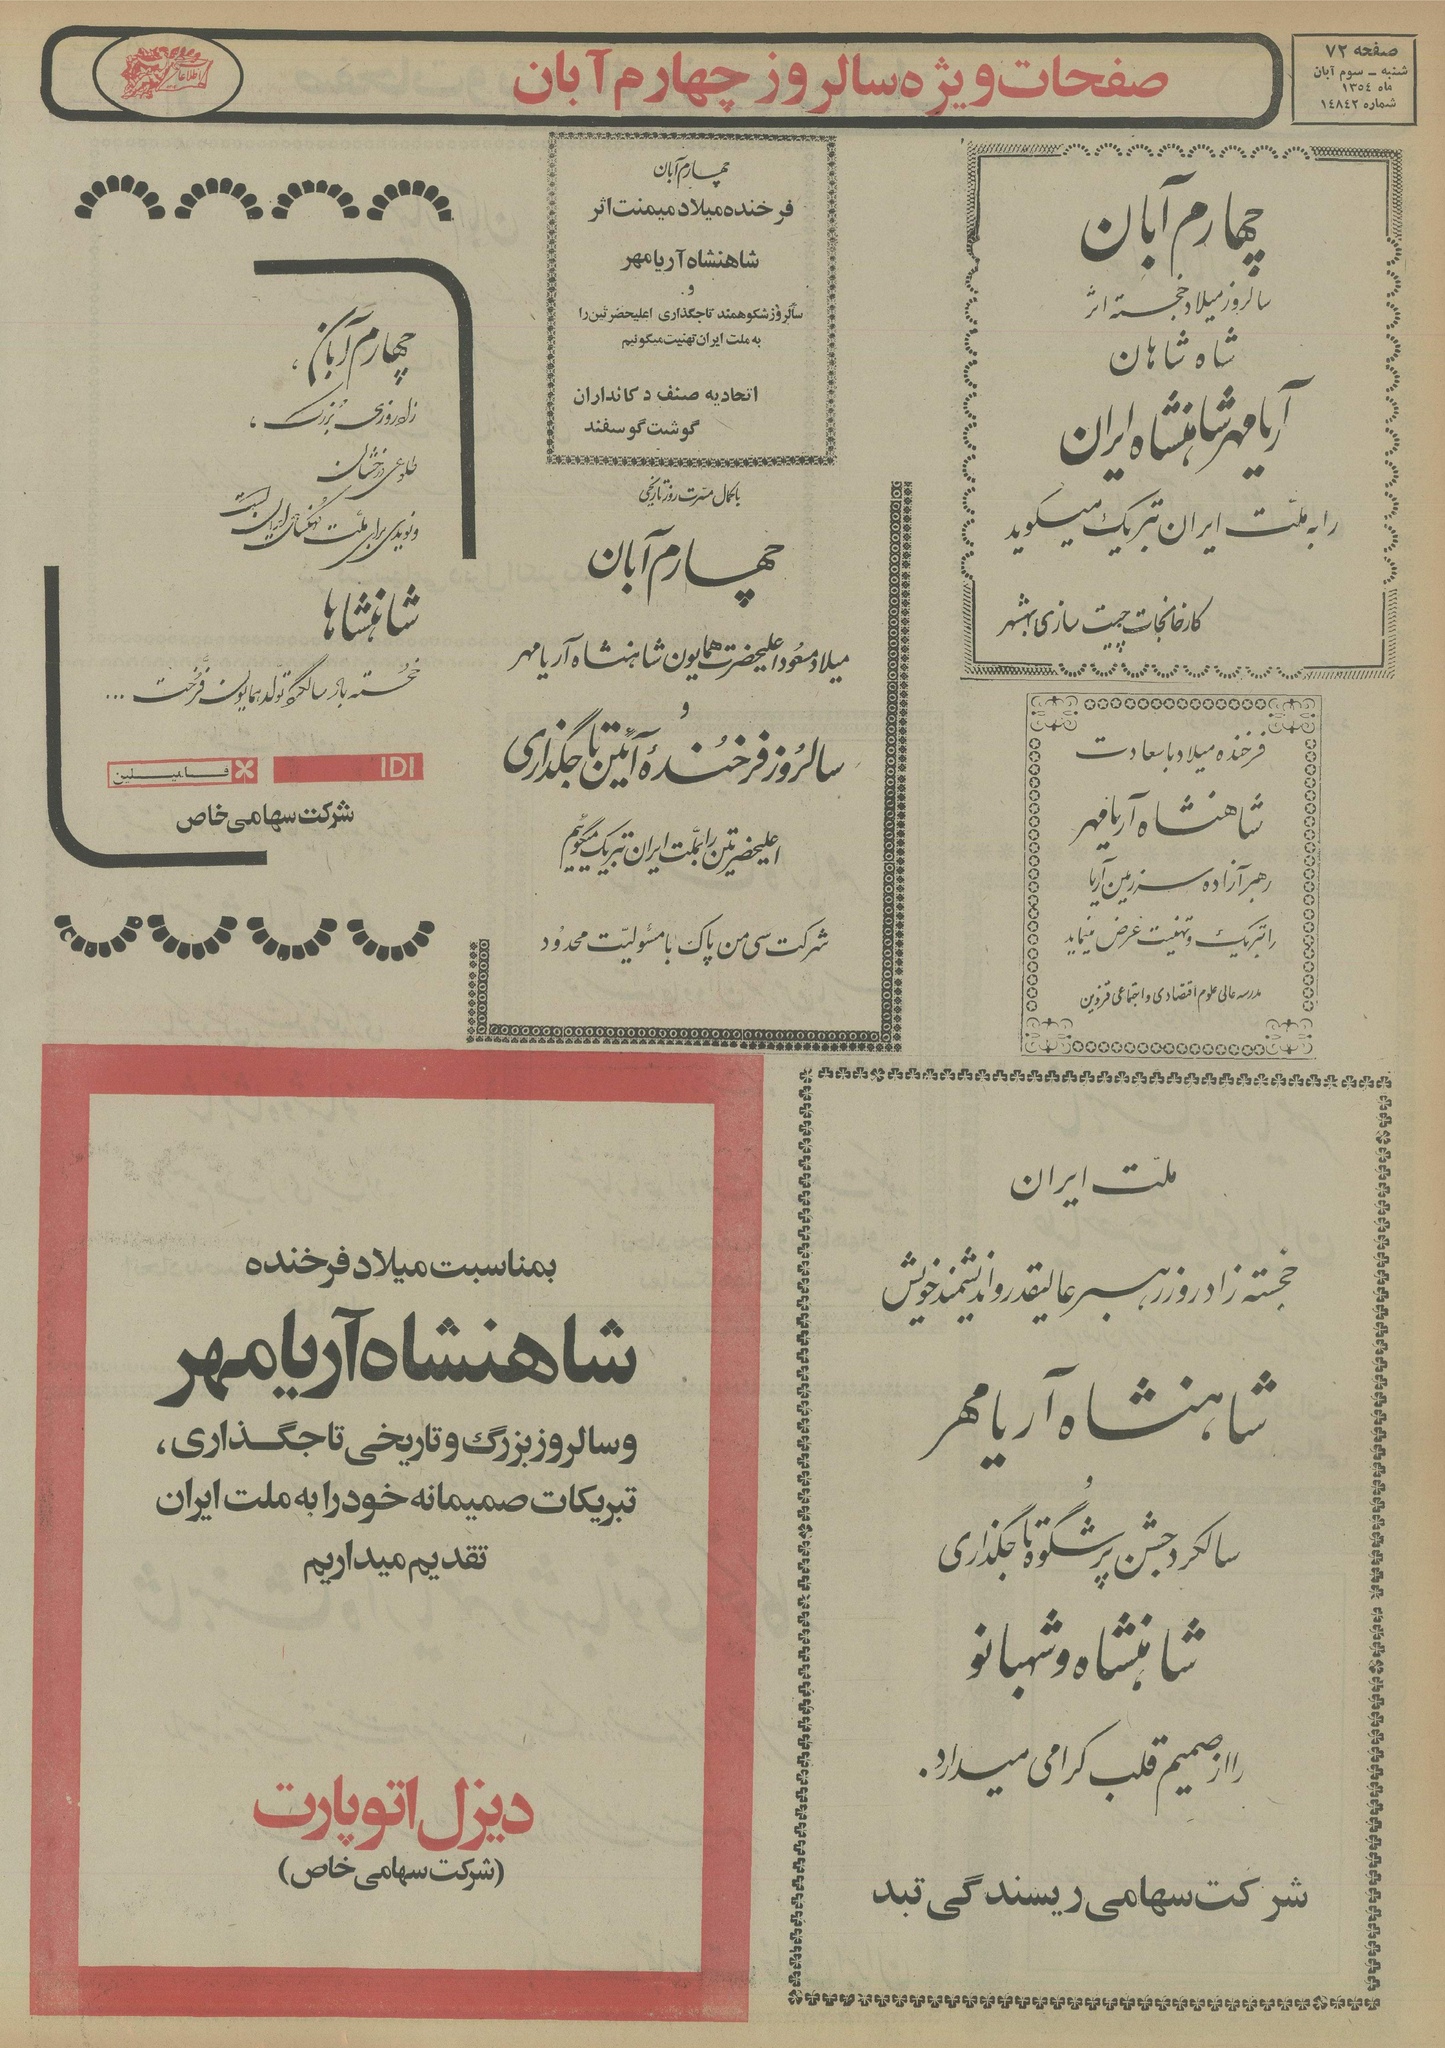 صفحه ۷۲
شنبه - سوم آبان
ماه ۱۳۵۴
شماره ۱۴۸۴۲
صفحات ویژه سالروز چهارم آبان
اطلاعات
چهارم آبان
سالروز میلاد خجسته اثر
شاه شاهان
آریامهر شاهنشاه ایران
را به ملّت ایران تبریک میگوید
کارخانجات چیت سازی بهشهر
چهارم آبان
فرخنده میلاد میمنت اثر
شاهنشاه آریامهر
و
سالروز شکوهمند تاجگذاری اعلیحضرتین را
به ملت ایران تهنیت میگوئیم
اتحادیه صنف دکانداران
گوشت گوسفند
چهارم آبان،
زادروزی بزرگ،
طلوعی درخشان
و نویدی برای ملّت کهنسال ایران است
شاهنشاها
خجسته باد سالگرد تولد همایون فرّخت ...
IDI
فامیلین
شرکت سهامی خاص
با کمال مسرت روز تاریخی
چهارم آبان
میلاد مسعود اعلیحضرت همایون شاهنشاه آریامهر
و
سالروز فرخندهٔ آئین تاجگذاری
اعلیحضرتین را بملّت ایران تبریک میگوئیم
شرکت سی من پاک با مسئولیّت محدود
فرخنده میلاد با سعادت
شاهنشاه آریامهر
رهبر آزاده سرزمین آریا
را تبریک و تهنیت عرض مینماید
مدرسه عالی علوم اقتصادی و اجتماعی قزوین
ملّت ایران
خجسته زادروز رهبر عالیقدر و اندیشمند خویش
شاهنشاه آریامهر
و
سالگرد جشن پرشکوه تاجگذاری
شاهنشاه و شهبانو
را از صمیم قلب گرامی میدارد.
شرکت سهامی ریسندگی تبد
بمناسبت میلاد فرخنده
شاهنشاه آریامهر
و سالروز بزرگ و تاریخی تاجگذاری،
تبریکات صمیمانه خود را به ملت ایران
تقدیم میداریم
دیزل اتوپارت
(شرکت سهامی خاص)